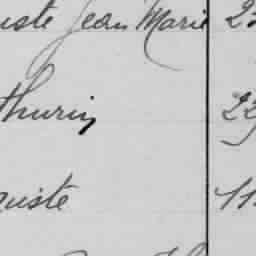 uste Jean Marie 2
thurin 22
guste 11